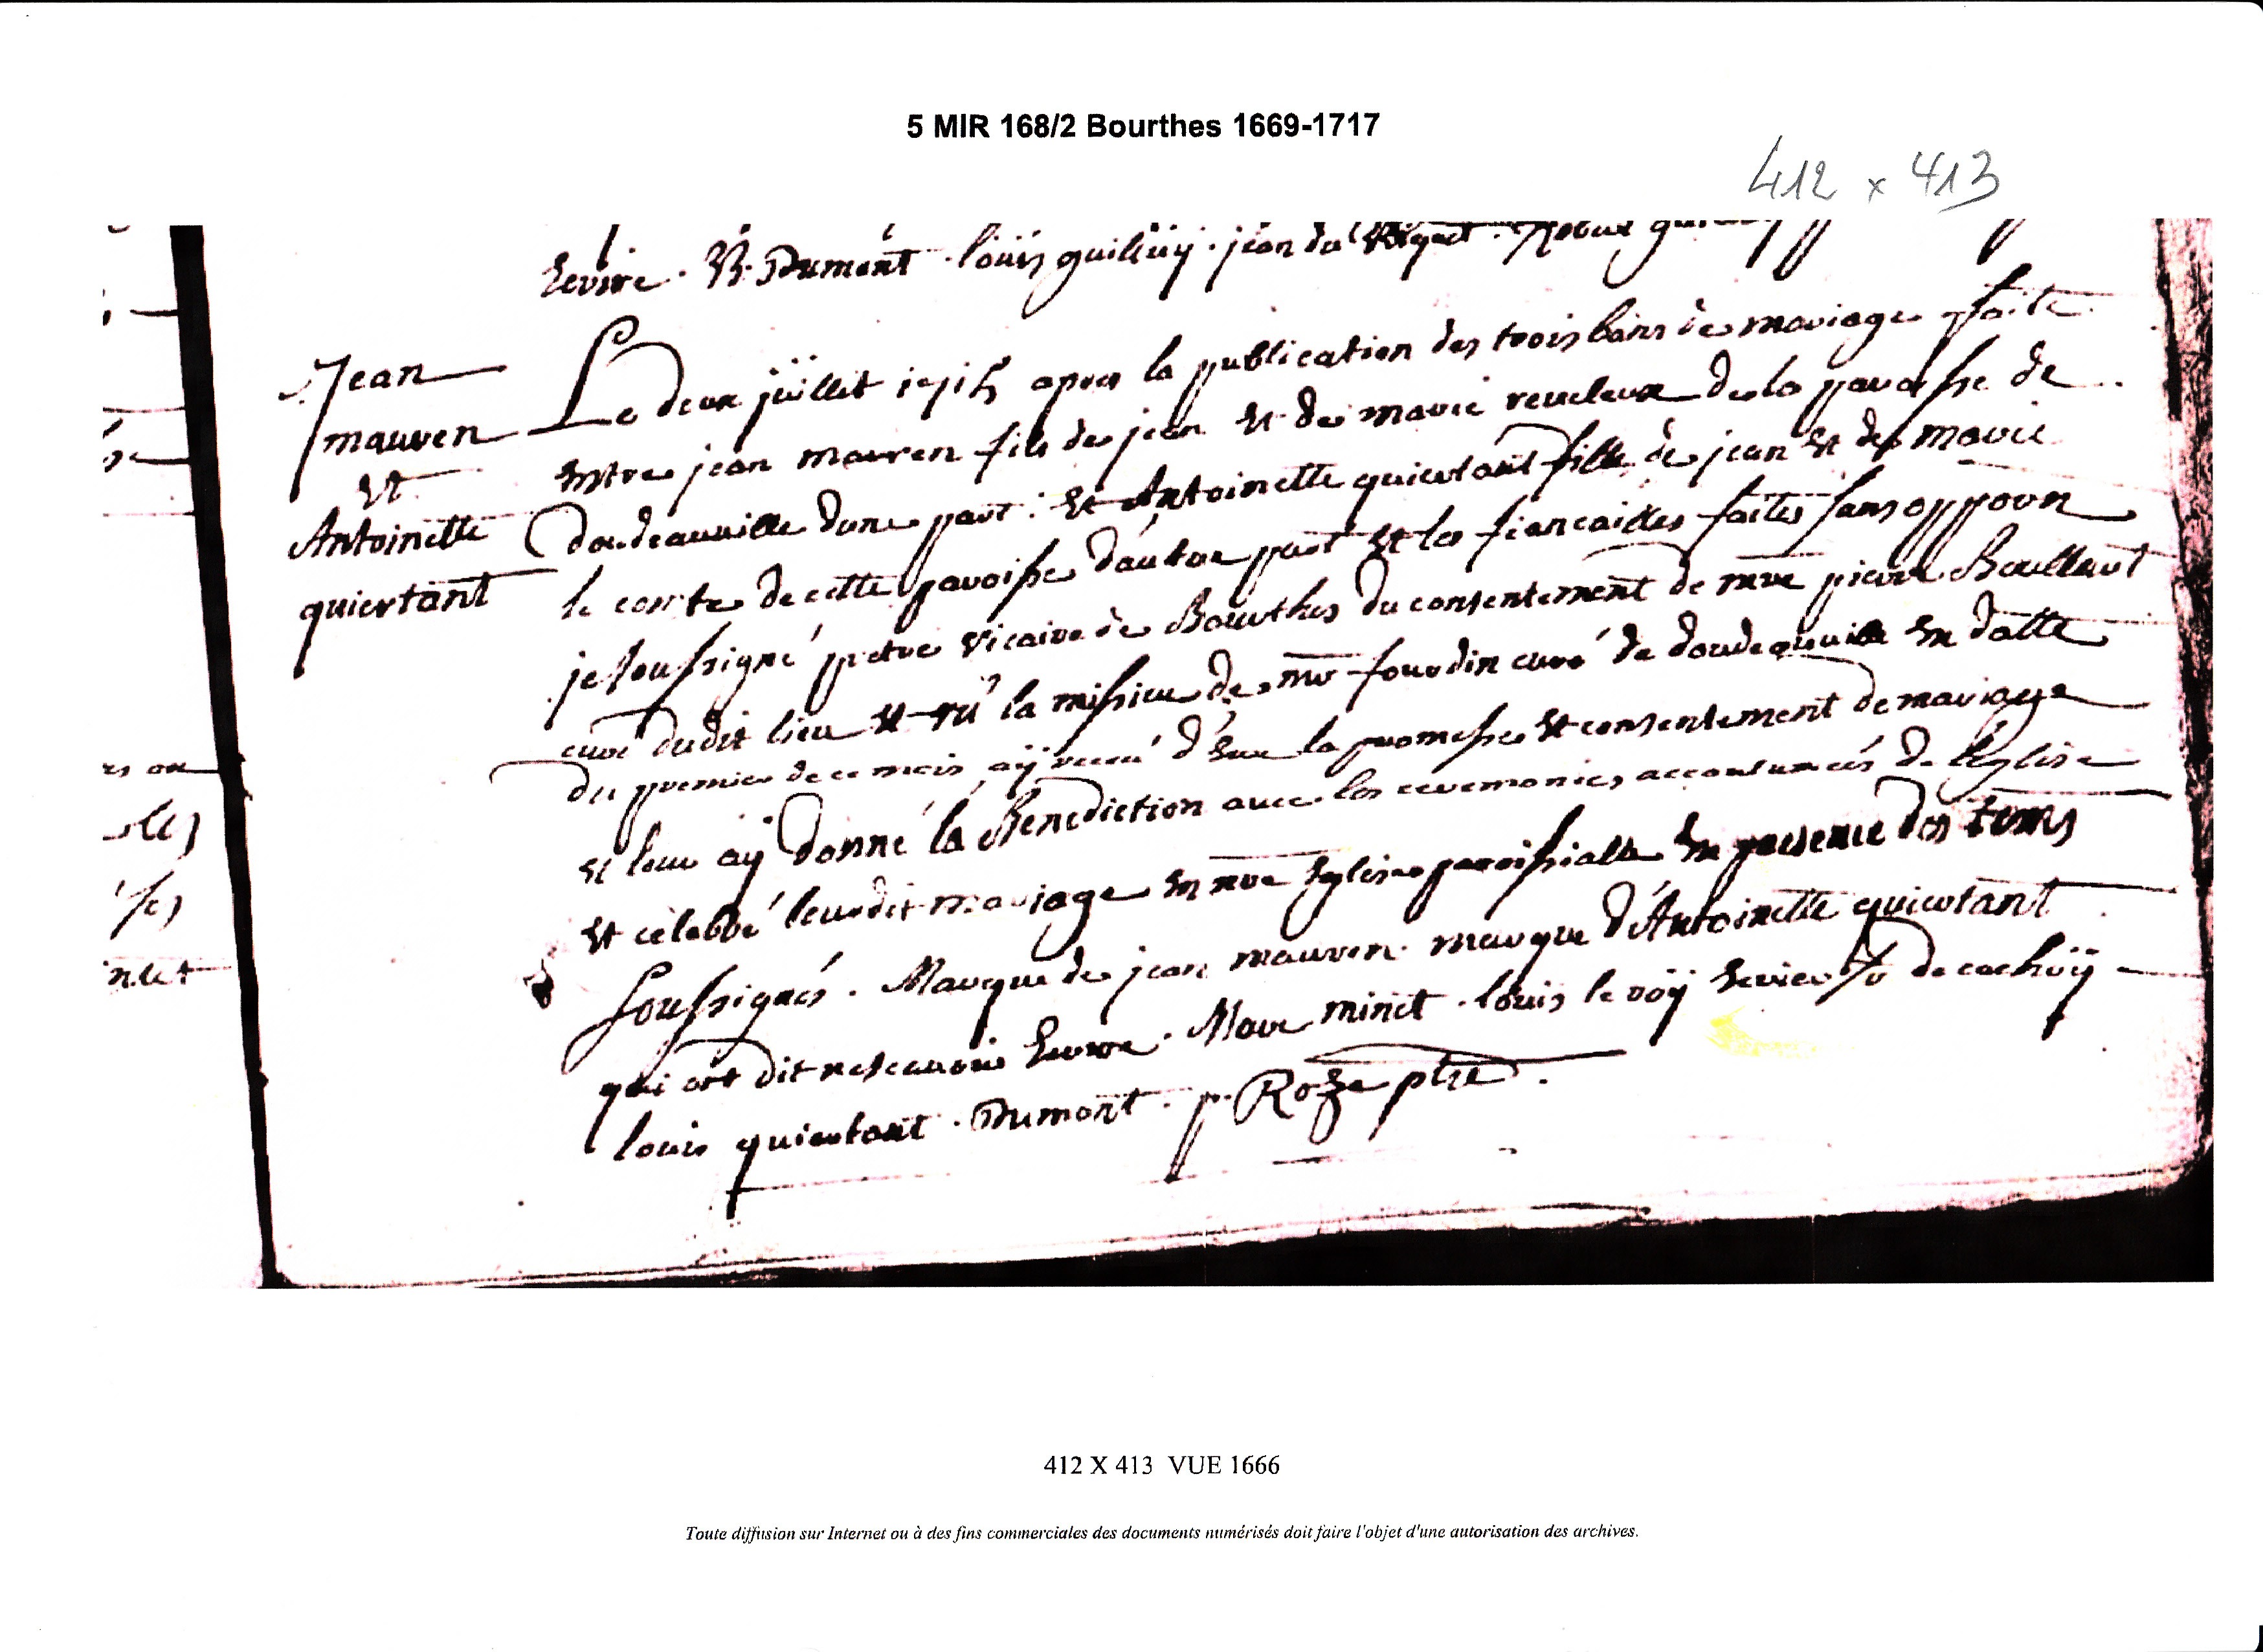 5 MIR 168/2 Bourthes 1669-1717
412 x 413
Ecrire. Dumont. louis guilluy. jean du
Jean
mauren
et
Antoinette
quiertant
Le deux juillet 1715 apres la publication des trois bans de mariage faite
entre jean mauren fils de jean et de marie reveleux de la paroisse de
doudeauville dune part. et Antoinette quiertant fille de jean et de marie
le conte de cette paroisse d'autre part et les fiancailles faites sans oppoon
je soussigné pretre vicaire de Bourthes du consentement de mre pierre Boullart
curé dudit lieu et vu la missive de mr fourdin curé de doudeauville en datte
du premier de ce mois aÿ receu d'eux la promesse et consentement de mariage
et leur aÿ donné la Benediction avec les ceremonies accoutumées de l'eglise
et celebré leurdit mariage en nre Eglise paroissialle en presence des tems
soussignés. Marque de jean mauren. marque d'Antoinette quiertant
qui ont dit ne scavoir Ecrire. Marc minet. louis le roÿ de cachÿ
louis quiertant. Dumont. p. Roze ptre.
rs ou
les
ses
nlet
412 X 413 VUE 1666
Toute diffusion sur Internet ou à des fins commerciales des documents numérisés doit faire l'objet d'une autorisation des archives.